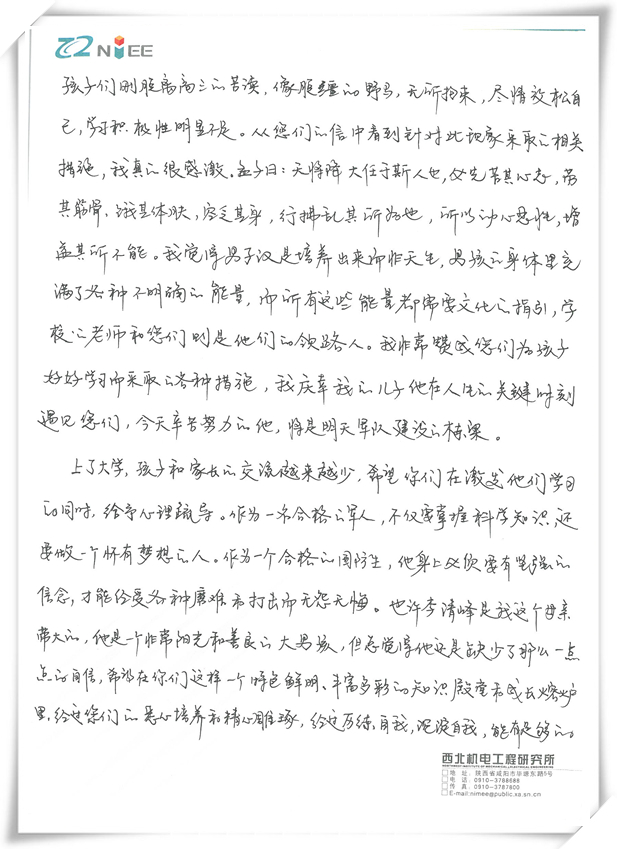 NIEE
孩子们刚脱离高三的苦读，像脱缰的野马，无所拘束，尽情放松自
己，学习积极性明显不足。从您们的信中看到针对此现象采取的相关
措施，我真的很感激。孟子曰：天将降大任于斯人也，必先苦其心志，劳
其筋骨，饿其体肤，空乏其身，行拂乱其所为也，所以动心忍性，增
益其所不能。我觉得男子汉是培养出来而非天生，男孩的身体里充
满了各种不明确的能量，而所有这些能量都需要文化的指引，学
校的老师和您们则是他们的领路人。我非常赞成您们为孩子
好好学习而采取的各种措施，我庆幸我的儿子他在人生的关键时刻
遇见您们，今天辛苦努力的他，将是明天军队建设的栋梁。
上了大学，孩子和家长的交流越来越少，希望你们在激发他们学习
的同时，给予心理疏导。作为一名合格的军人，不仅要掌握科学知识还
要做一个怀有梦想的人。作为一个合格的国防生，他身上必须要有坚强的
信念，才能经受各种磨难和打击而无怨无悔。也许李清峰是我这个母亲
带大的，他是个非常阳光和善良的大男孩，但总觉得他还是缺少了那么一点
点的自信，希望在你们这样一个特色鲜明、丰富多彩的知识殿堂和成长熔炉
里，经过您们的悉心培养和精心雕琢，经过历练自我，沉淀自我，能有足够的
西北机电工程研究所
NORTHWEST INSTITUTE OF MECHANICAL & ELECTRICAL ENGINEERING
地 址：陕西省咸阳市毕塬东路5号
电 话：0910-3788688
传 真：0910-3787600
E-mail:nimee@public.xa.sn.cn